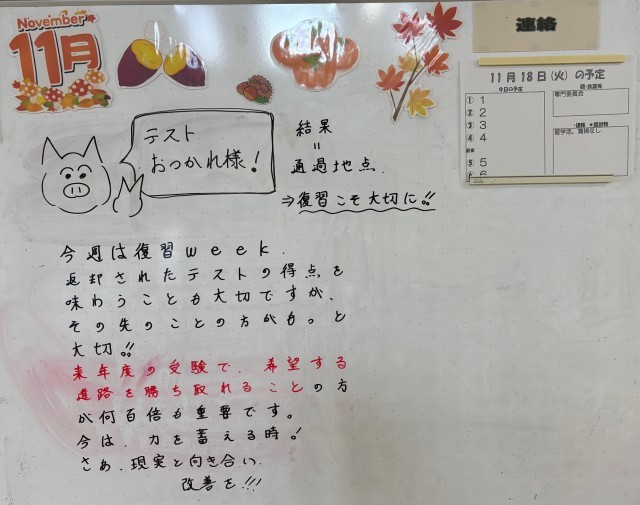 November
11月
テスト
おつかれ様!
結果
=
通過地点.
⇒復習こそ大切に!!
今週は復習week.
返却されたテストの得点を
味わうことも大切ですが、
その先のことの方がもっと
大切!!
来年度の受験で、希望する
進路を勝ち取れることの方
が何百倍も重要です。
今は、力を蓄える時!
さあ、現実と向き合い、
改善を!!!
連絡
11月18日(火)の予定
今日の予定
① 1
② 2
③ 3
④ 4
⑤ 5
6
専門委員会